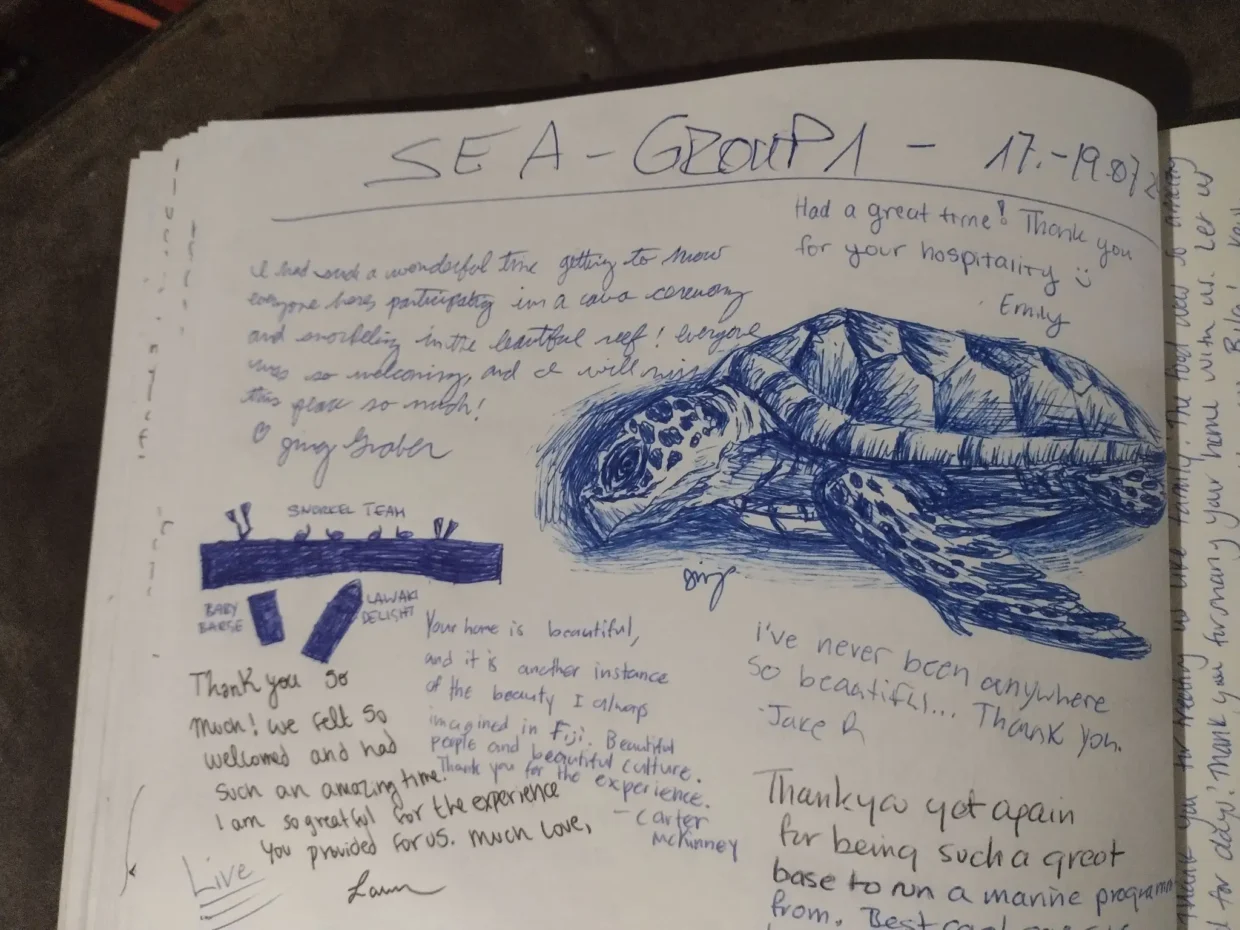 SEA - GROUP 1 - 17.-19.07.2
Had a great time! Thank you
for your hospitality
Emily
I had such a wonderful time getting to know
everyone here, participating in a cava ceremony
and snorkeling in the beautiful reef! everyone
was so welcoming, and I will miss
this place so much!
SNORKEL TEAM
BABY
BARGE
LAWAKI
DELIGHT
Thank you so
much! we felt so
welcomed and had
such an amazing time.
I am so greatful for the experience
you provided for us. much love,
Live
Your home is beautiful,
and it is another instance
of the beauty I always
imagined in Fiji. Beautiful
people and beautiful culture.
Thank you for the experience.
- Carter
McKinney
I've never been anywhere
so beautiful... Thank you.
Jake R
Thank you yet again
for being such a great
base to run a marine programm
from. Best
Thank you for treating us like family! The food was so amazing
for day! Thank you for sharing your home with us. Let us